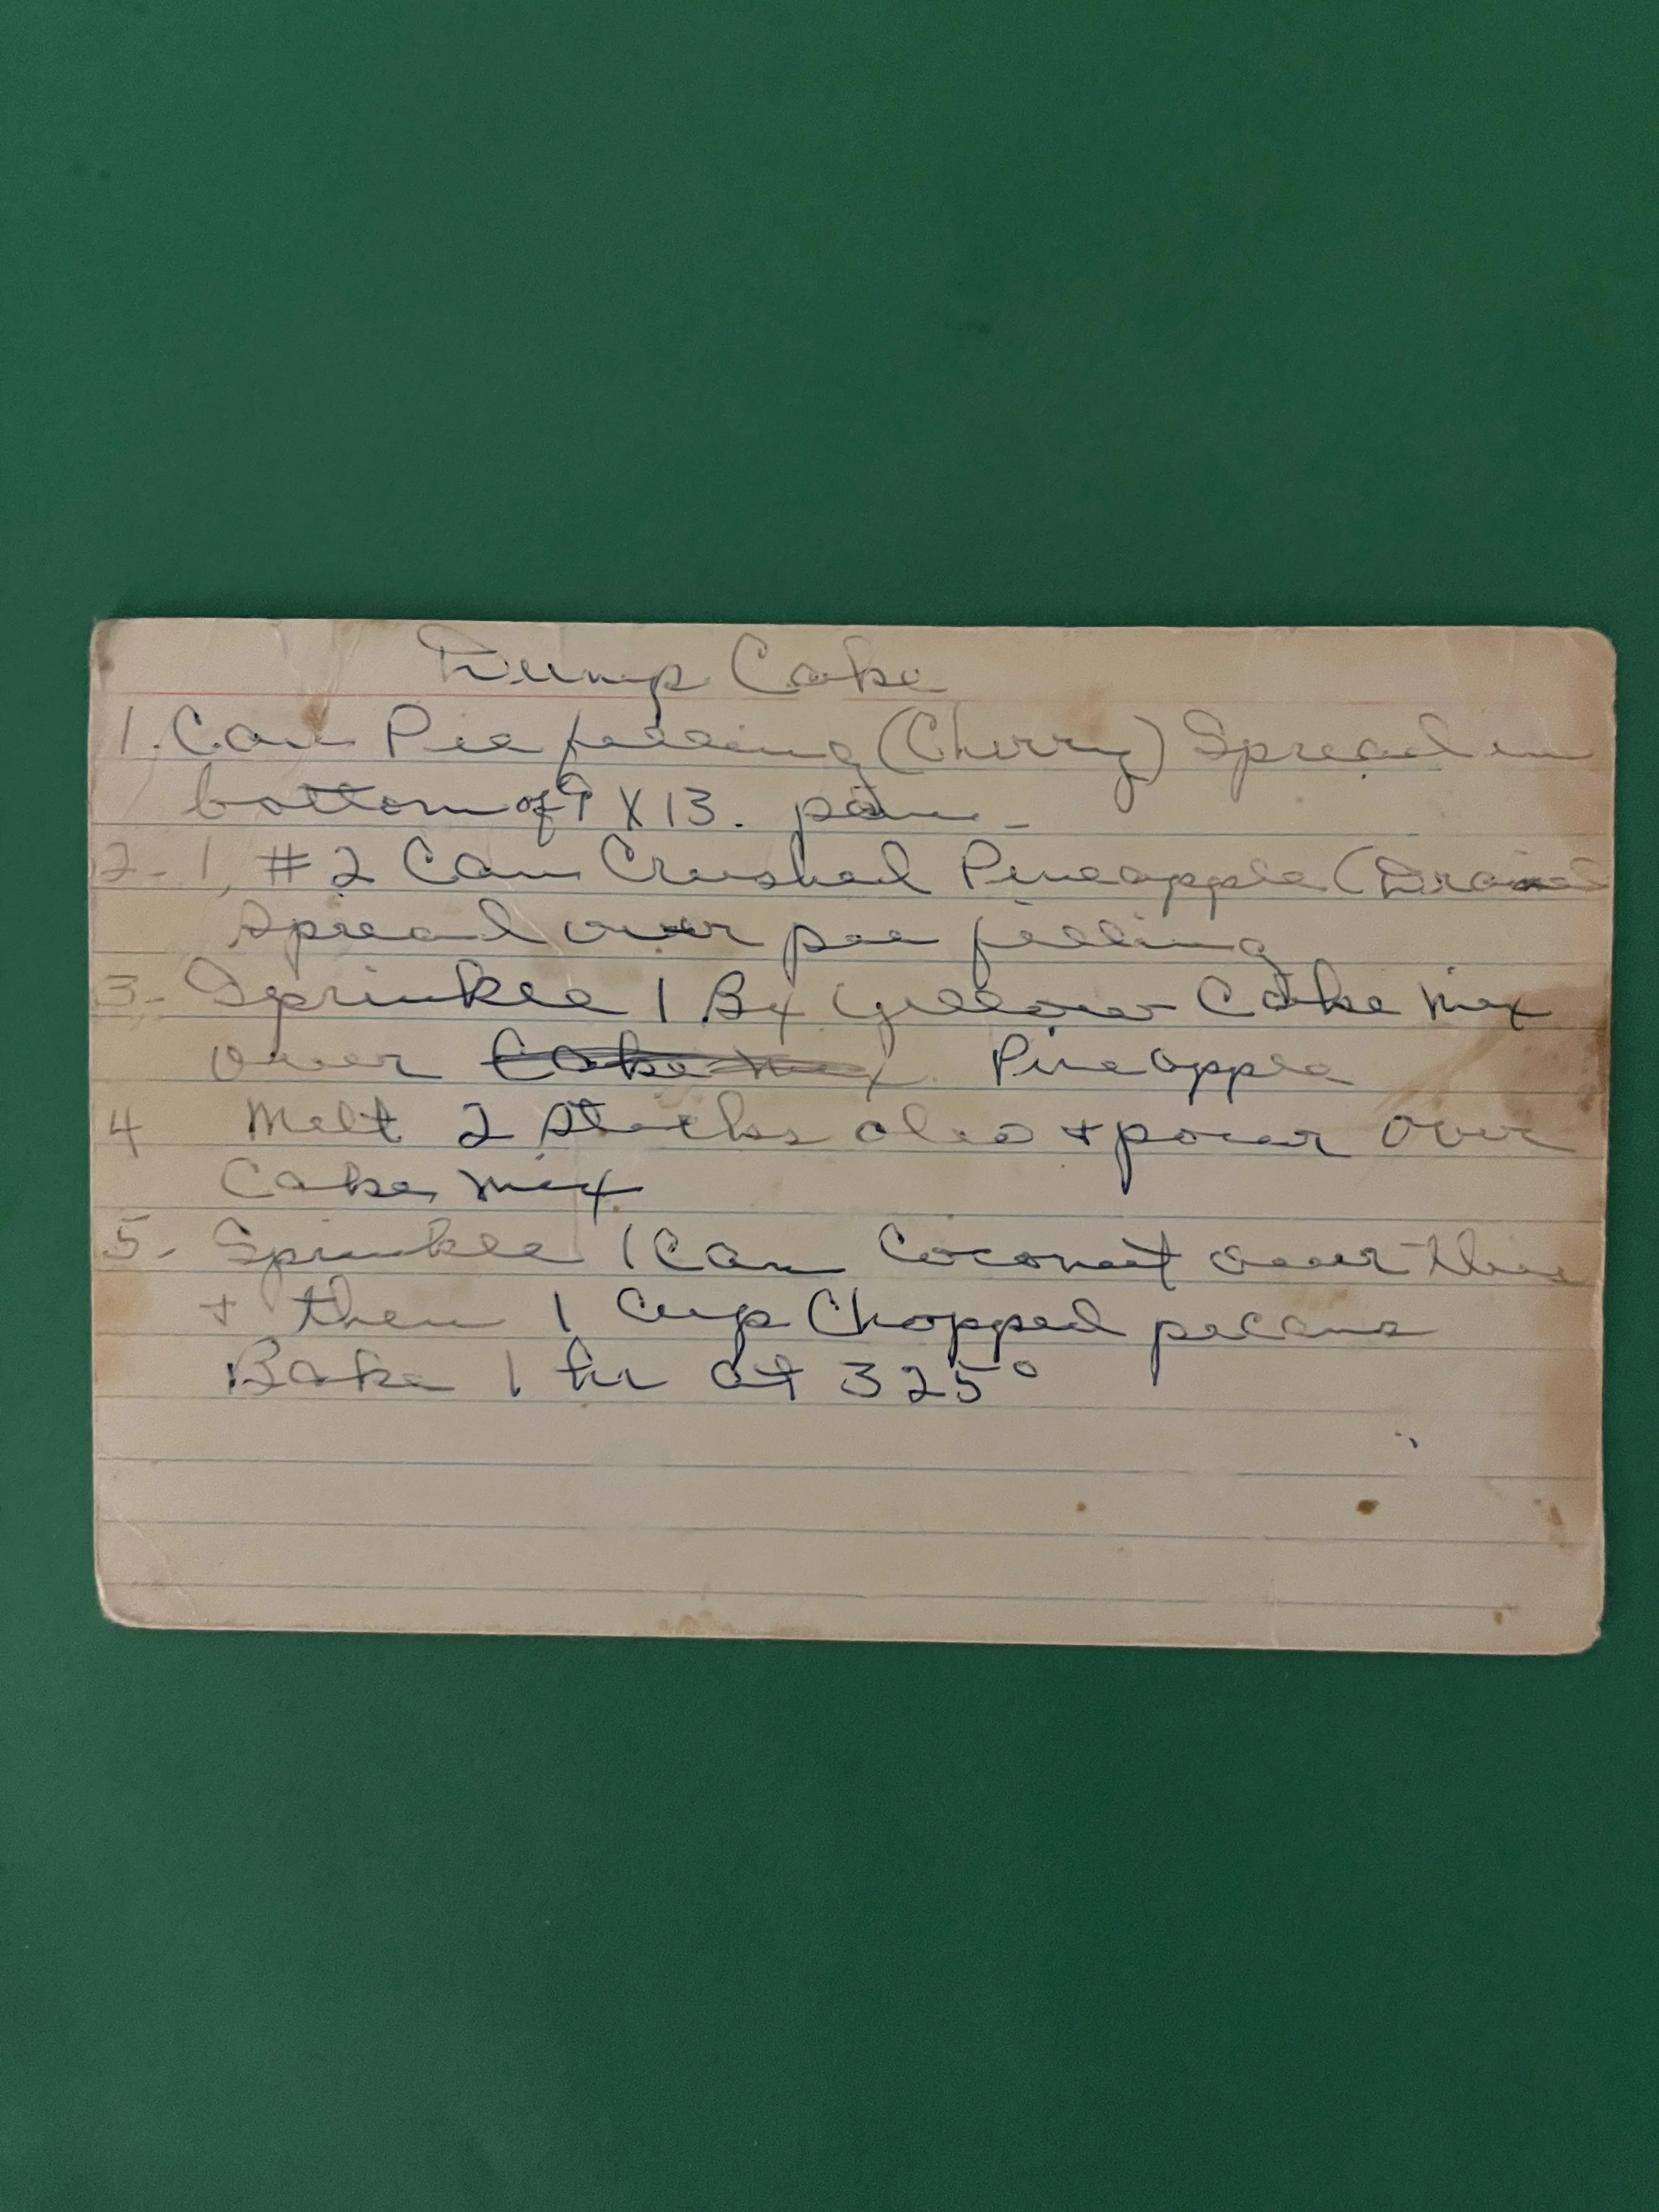 Dump Cake
1. Can Pie filling (Cherry) Spread in
bottom of 9 X 13. pan -
2 - 1, #2 Can Crushed Pineapple (Drained
spread over pie filling
3 - Sprinkle 1 Bx yellow Cake Mix
over Cake mix Pineapple
4 Melt 2 sticks oleo + pour over
Cake mix
5 - Sprinkle 1 Can Coconut over this
+ then 1 Cup Chopped pecans
Bake 1 hr at 325°